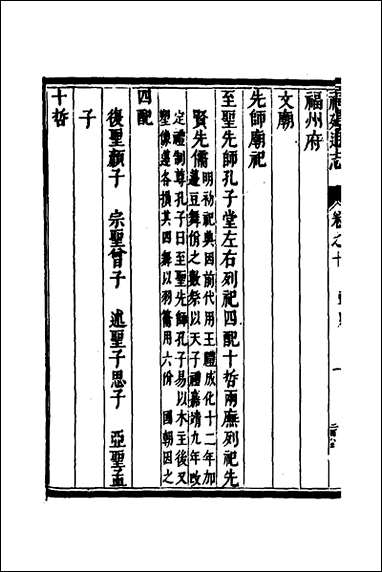 福建通志 卷之十 一
福州府
文廟
先師廟祀
至聖先師孔子堂左右列祀四配十哲兩廡列祀先
賢先儒明初祀典因前代用王禮成化十二年加
籩豆舞佾之數祭以天子禮嘉靖九年改
定禮制尊孔子曰至聖先師孔子易以木主後又
塑像籩各損其四舞以羽籥用六佾 國朝因之
四配
復聖顏子 宗聖曾子 述聖子思子 亞聖孟
子
十哲